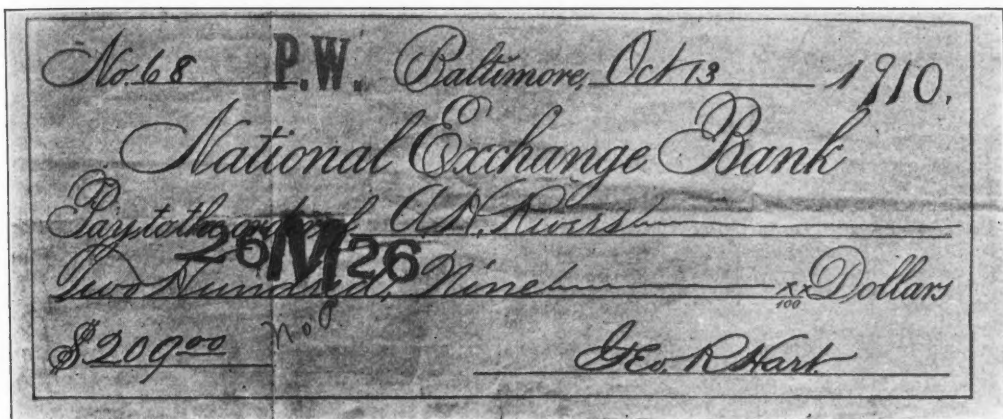 No. 68 P.W. Baltimore, Oct 13 1910.
National Exchange Bank
Pay to the order of A.D. Rivers
26 M 26
Two Hundred, Nine xx/100 Dollars
$209 00
Geo. R Hart